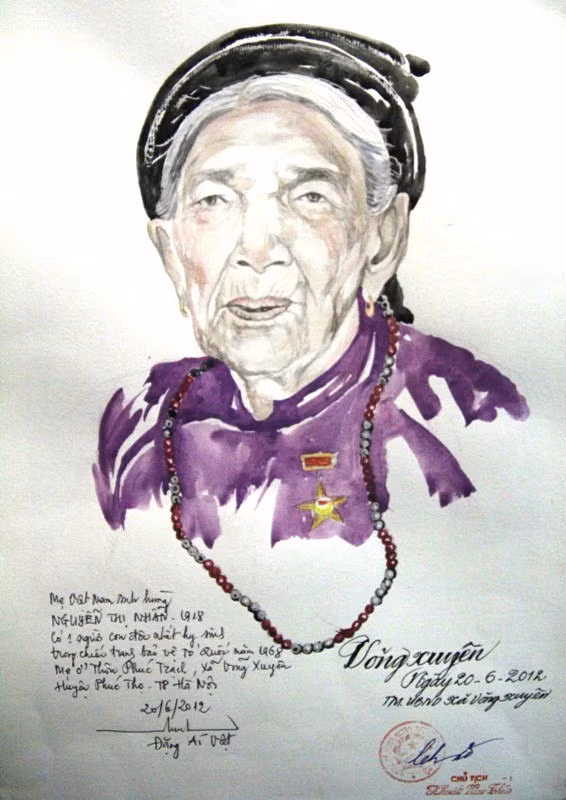 Mẹ Việt Nam anh hùng
NGUYỄN THỊ NHẪN - 1918
Có 1 người con độc nhất hy sinh
trong chiến tranh bảo vệ Tổ Quốc năm 1968
Mẹ ở Thôn Phúc Trạch, Xã Võng Xuyên
Huyện Phúc Thọ - TP Hà Nội
20/6/2012
Đặng Ái Việt
Võng Xuyên
Ngày 20-6-2012
TM. UBND Xã Võng Xuyên
CHỦ TỊCH